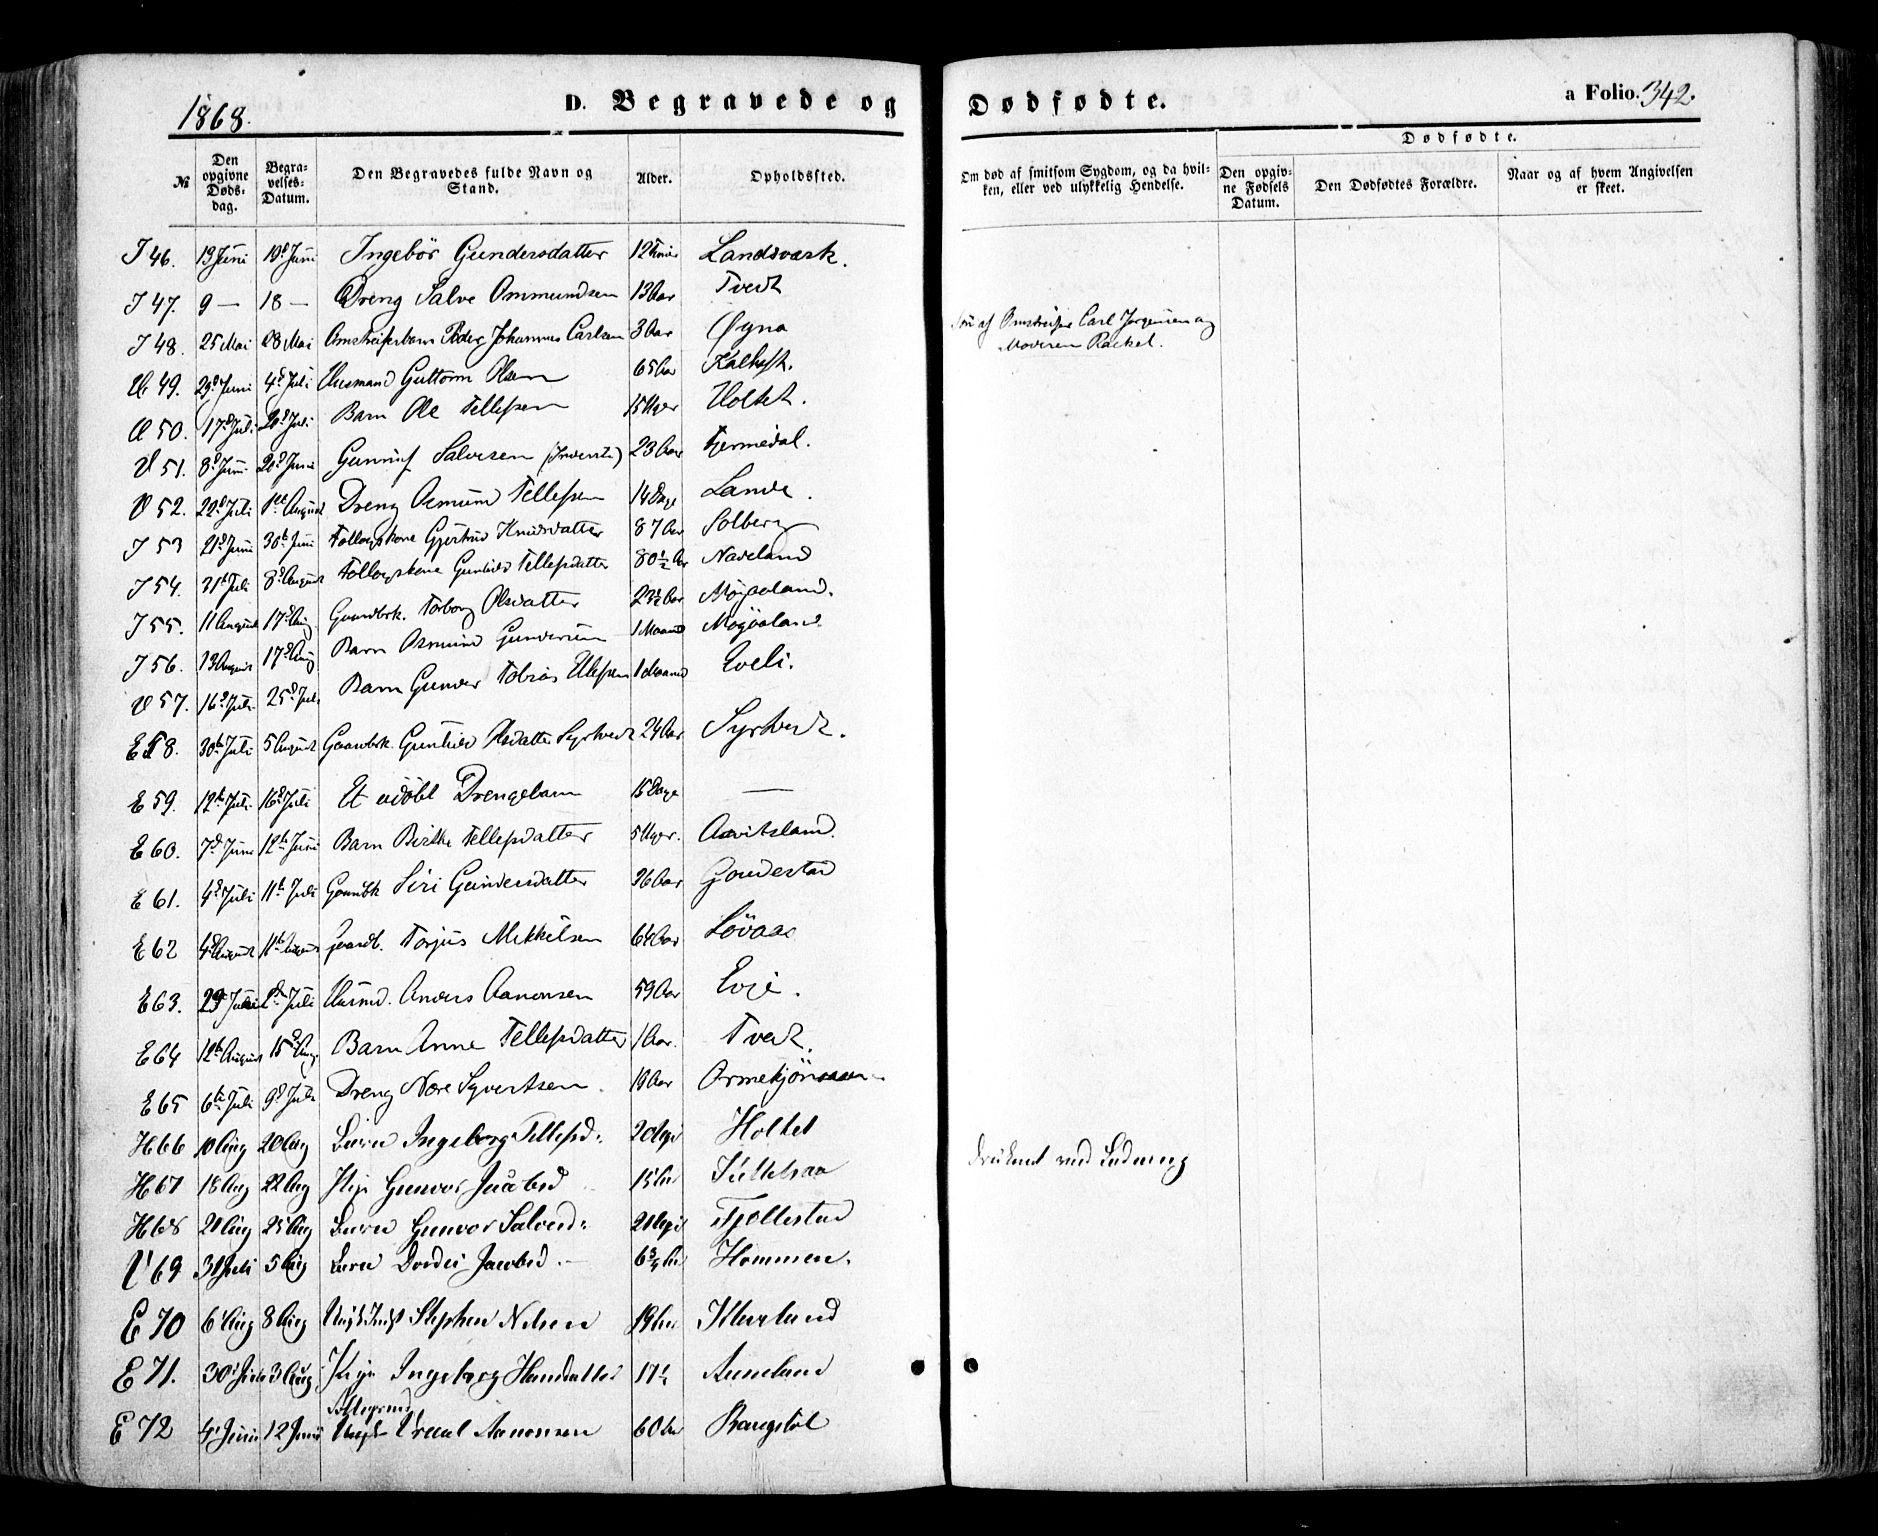 1868.
D. Begravede og Dødfødte.
a Folio. 342.
№
Den opgivne Døds-dag.
Begra-velses-Datum.
Den Begravedes fulde Navn og Stand.
Alder.
Opholdssted.
Om død af smitsom Sygdom, og da hvil-ken, eller ved ulykkelig Hendelse.
Dødfødte.
Den opgiv-ne Fødsels Datum.
Den Dødfødtes Forældre.
Naar og af hvem Angivelsen er skeet.
I 46. 13 Juni 19d Juni Ingebör Gundersdatter 12 Landsværk.
I 47. 9 — 18 — Dreng Salve Ommundsen 13 Aar Tvedt
I 48. 25 Mai 28 Mai Omstreiferbarn Peder Johannes Carlsen 3 Aar Øyna Søn af Omstreifer Carl Jørgensen og
Moderen Rachel.
U 49. 29d Juni 4d Juli Husmand Guttorm Olsen 65 Aar
U 50. 17d Juli 20d Juli Barn Ole Tellefsen 15 Uger Holtet.
V 51. 8d Juni 20d Juni Gunnuf Salvesen (Inderste) 23 Aar Hjermedal.
V 52. 22d Juli 1ste August Dreng Asmund Tellefsen 14 Dage Lande.
I 53 21d Juni 30te Juni Føllougskone Gjertrud Knudsdatter 87 Aar Solberg
I 54. 31te Juli 8d August Føllougskone Gunhild Tellefsdatter 80½ Aar Naveland
I 55. 11 August 17d Aug Gaardbrk. Torborg Olsdatter 2½ Aar
I 56. 13 August 17d Aug Barn Asmund Gundersen 1 Maaned
V 57. 16d Juli 25d Juli Barn Gunder Tobias Ellefsen 1 Maaned Eveli.
E 58. 30te Juli 5 August Gaardbrk. Gunhild Olsdatter Syrtvedt 24 Aar Syrtvedt.
E 59. 12te Juli 16d Juli Et udöbt Drengebarn 15 Dage —
E 60. 7d Juni 12te Juni Barn Birthe Tellefsdatter 5 Uger. Aavitsland.
E 61. 4d Juli 11te Juli Gaardbk Siri Gundersdatter 36 Aar Goudestad
E 62 4d August 11te August Gaardb. Torjus Mikkelsen 64 Aar Lövaas
E 63. 29 Juni 2d Juli Husmd. Anders Aanonsen 59 Aar Evje.
E 64 12te August 15d Aug. Barn Anne Tellefsdatter 1 Aar. Tvedt.
E 65 6te Juli 9d Juli Dreng Nere Syvertsen 19 Aar
H 66 10 Aug 20 Aug Barn Ingeborg Tellefsd: 20 Holtet
H 67 18 Aug 22 Aug Pige Gunvor 15 Aar druknet ved Badning
H 68 20 Aug 25 Aug Barn Gunvor Salvesd: Fjellestad
V 69 31 Juli 5 Aug Barn Dordei Jacobsd. 6¾ Aar Hommen.
E 70 6 Aug 8 Aug Stephen Nilsen 19 Aar
E 71. 30 3 Aug Pige Ingeborg Hansdatter 17½
E 72 4 Juni 12 Juni Aanonsen 60 Aar